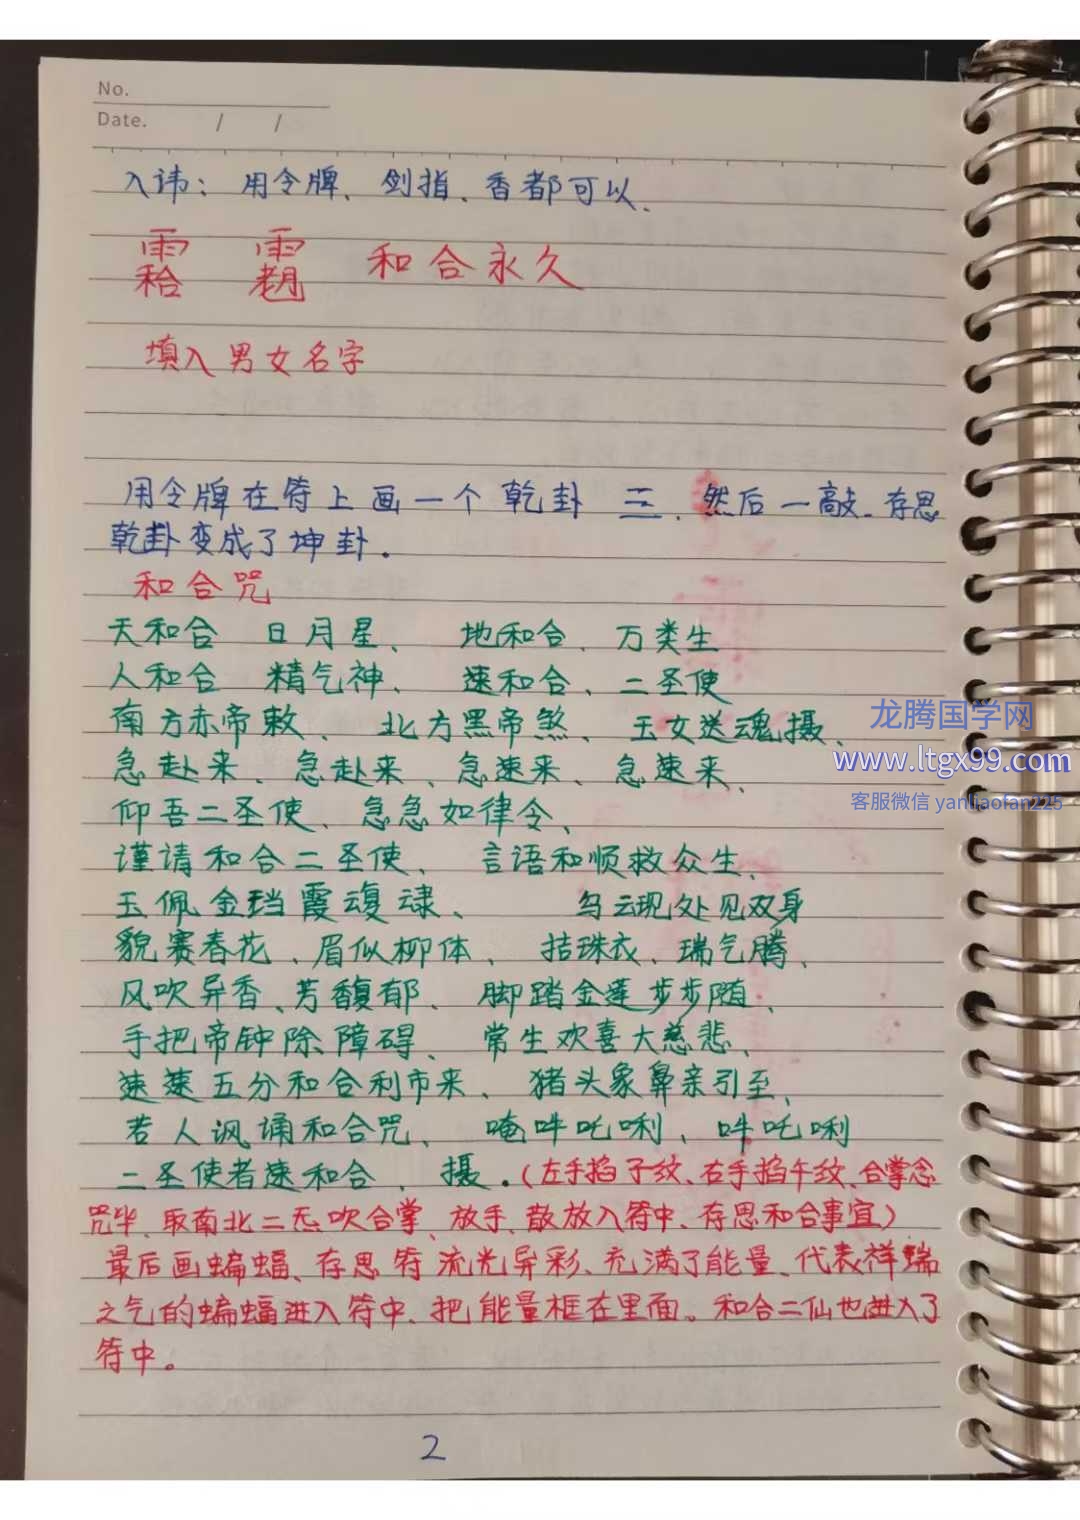 No.
Date. / /
入讳：用令牌、剑指、香都可以、
和合永久
填入男女名字
用令牌在符上画一个乾卦 三、然后一敲、存思
乾卦变成了坤卦.
和合咒
天和合 日月星、 地和合、万类生
人和合 精气神、 速和合、二圣使
南方赤帝敕、 北方黑帝煞、 玉女送魂摄、
急赴来、急赴来、急速来、急速来、
仰吾二圣使、急急如律令、
谨请和合二圣使、 言语和顺救众生、
玉佩金珰霞 、 乌云现处见双身
貌赛春花、眉似柳体、 拮珠衣、瑞气腾、
风吹异香、芳馥郁、 脚踏金莲步步随、
手把帝钟除障碍、 常生欢喜大慈悲、
速速五分和合利市来、 猪头象鼻亲引至、
若人讽诵和合咒、 唵吽吒唎、吽吒唎
二圣使者速和合、摄.(左手掐子纹、右手掐午纹、合掌念
咒毕、取南北二炁、吹合掌、放手、散放入符中、存思和合事宜)
最后画蝙蝠、存思符流光异彩、充满了能量、代表祥瑞
之气的蝙蝠进入符中、把能量框在里面。和合二仙也进入了
符中。
2
龙腾国学网
www.ltgx99.com
客服微信 yanliaofan225